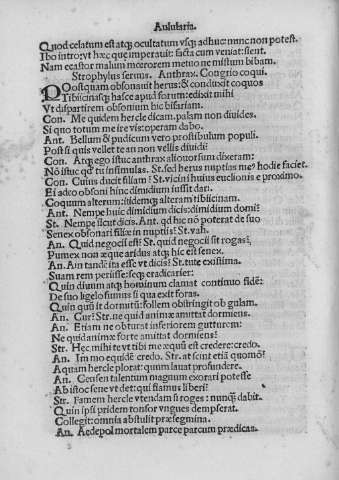 Aulularia.
Quod celatum est atq; ocultatum usq; adhuc: nunc non potest.
Ibo intro: ut hæc quæ imperaui: facta cum veniat: sient.
Nam ecastor malum merorem metuo ne mistum bibam.
Strophylus seruus. Anthrax. Congrio coqui.
POostquam obsonauit herus: & conduxit coquos
Tibiicinasq; hasce apud forum: edixit mihi
Ut dispartirem obsonium hic bifariam.
Con. Me quidem hercle dicam. palam non diuides.
Si quo totum me ire vis: operam dabo.
Ant. Bellum & pudicum vero prostibulum populi.
Post si quis vellet te an non vellis diuidi?
Con. Atq; ego istuc anthrax aliouorsum dixeram:
Nō istuc qd' tu insimulas. St. sed herus nuptias meꝰ hodie faciet.
Con. Cuius ducit filiam? St. vicini huius euclionis e proximo.
Ei adeo obsoni hinc dimidium iussit dari.
Coquum alterum: itidemq; alteram tibiicinam.
Ant. Nempe huic dimidium dicis: dimidium domi?
St. Nempe sicut dicis. Ant. qd hic nō poterat de suo
Senex obsonari filiæ in nuptiis? St. vah.
An. Quid negocii est? St. quid negocii sit rogas?
Pumex non æque aridus atq; hic est senex.
An. Ain tandē ita esse vt dicis? St. tute existima.
Suam rem periisse: seq; eradicarier:
Quin diuum atq; hominum clamat continuo fidē:
De suo tigelo fumus si qua exit foras.
Quin quū it dormitū: follem obstringit ob gulam.
An. Cur? Str. ne quid animæ amittat dormiens.
An. Etiam ne obturat inferiorem gutturem:
Ne quid animæ forte amittat dormiens?
Str. Hec mihi te vt tibi me æquū est credere: credo.
An. Im mo equidē credo. Str. at scin et etiā quomō?
Aquam hercle plorat: quum lauat profundere.
An. Censen talentum magnum exorari potesse
Ab istoc sene vt det: qui fiamus liberi?
Str. Famem hercle vtendam si roges: nunq̄ dabit.
Quin ipsi pridem tonsor vngues dempserat.
Collegit: omnia abstulit præsegmina.
An. Aedepol mortalem parce parcum prædicas.